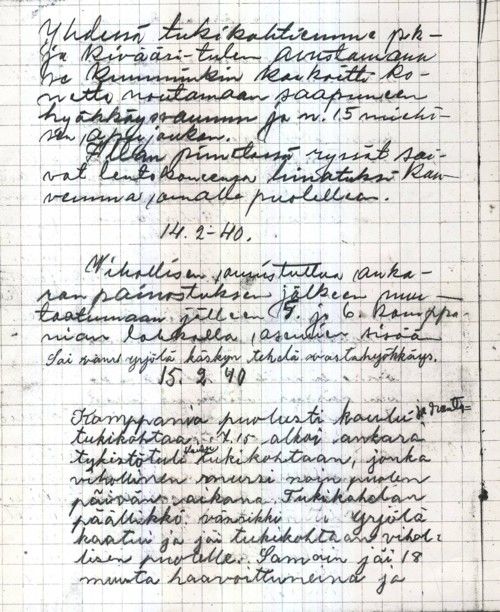 Yhdessä tukikohtiemme pk-
ja kivääri-tulen avustamana
he kumminkin karkoitti ko-
netta noutamaan saapuneen
hyökkäysvaunun ja n. 15 miehi-
sen apujoukon.
Illan pimetessä ryssät sai-
vat lentokoneensa hinatuksi kau-
vemma, omalle puolelleen.
14.2-40.
Vihollisen onnistuttua, anka-
ran painostuksen jälkeen mur-
tautumaan jälleen 5. ja 6. komppa-
nian lohkolla, asemien sisään
Sai vänr. Yrjölä käskyn tehdä vastahyökkäys.
15.2.40
Komppania puolusti koulu ja ranta-
tukikohtaa. 7.15 alkoi ankara
tykistötuli koulun tukikohtaan, jonka
vihollinen mursi noin puolen
päivän aikana. Tukikohdan
päällikkö vänrikki Yrjölä
kaatui ja jäi tukikohtaan vihol-
lisen puolelle. Samoin jäi 18
muuta haavoittuneina ja